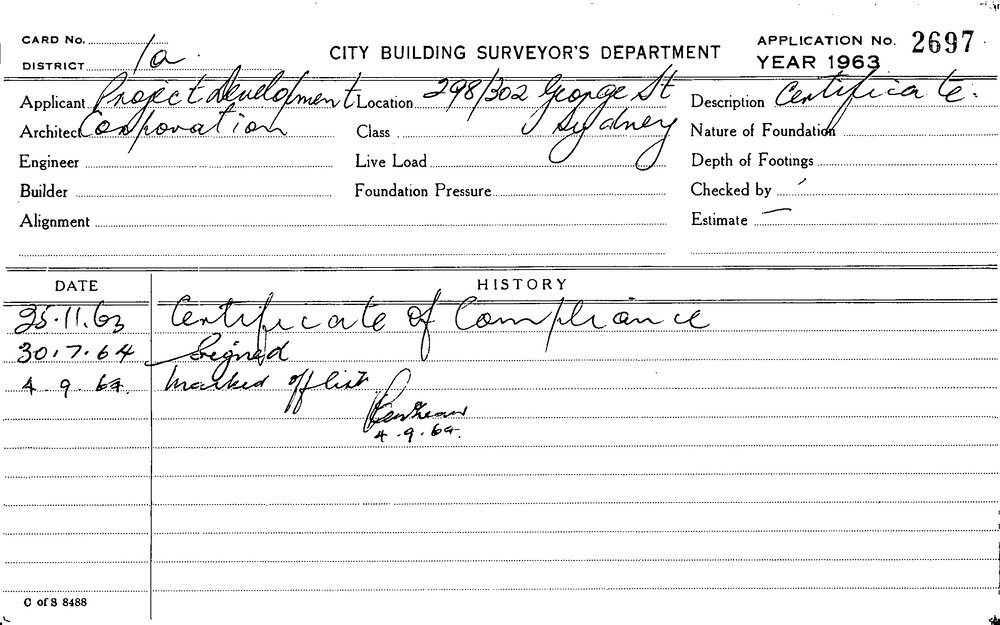 CARD No.
DISTRICT 1a.
CITY BUILDING SURVEYOR'S DEPARTMENT
APPLICATION No. 2697
YEAR 1963
Applicant Project Development Location 298/302 George St Description Certificate.
Architect Corporation Class Sydney Nature of Foundation
Engineer Live Load Depth of Footings
Builder Foundation Pressure Checked by
Alignment Estimate —
DATE HISTORY
25.11.63 Certificate of Compliance
30.7.64 Signed
4.9.64. Marked off list
4.9.64.
C of S 8488